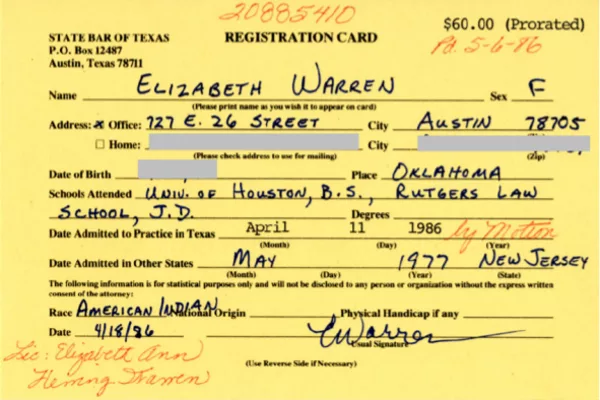 20885410
$60.00 (Prorated)
STATE BAR OF TEXAS REGISTRATION CARD Pd. 5-6-86
P.O. Box 12487
Austin, Texas 78711
Name ELIZABETH WARREN Sex F
(Please print name as you wish it to appear on card)
Address: x Office: 727 E. 26 STREET City AUSTIN 78705
Home: City
(Please check address to use for mailing) (Zip)
Date of Birth Place OKLAHOMA
Schools Attended UNIV. OF HOUSTON, B.S., RUTGERS LAW
SCHOOL, J.D. Degrees
Date Admitted to Practice in Texas April 11 1986 by Motion
(Month) (Day) (Year)
Date Admitted in Other States MAY 1977 NEW JERSEY
(Month) (Day) (Year) (State)
The following information is for statistical purposes only and will not be disclosed to any person or organization without the express written
consent of the attorney:
Race AMERICAN INDIAN National Origin Physical Handicap if any
Date 4/18/86 EWarren
Usual Signature
Lic: Elizabeth Ann
Herring Warren
(Use Reverse Side if Necessary)